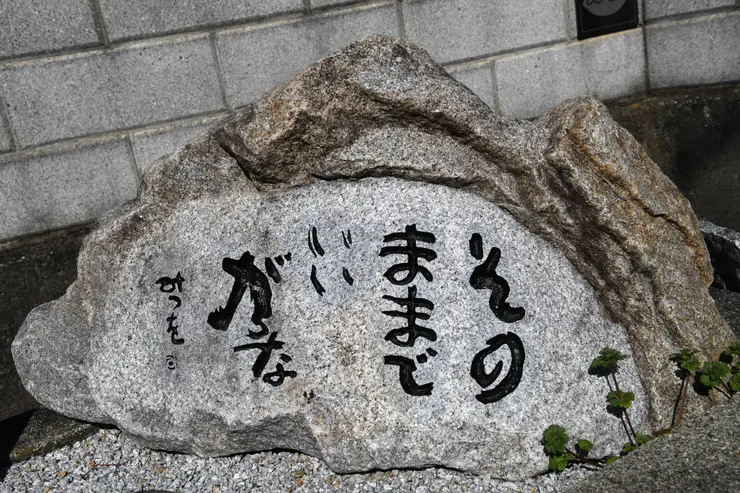 その
ままで
いい
がな
みつを